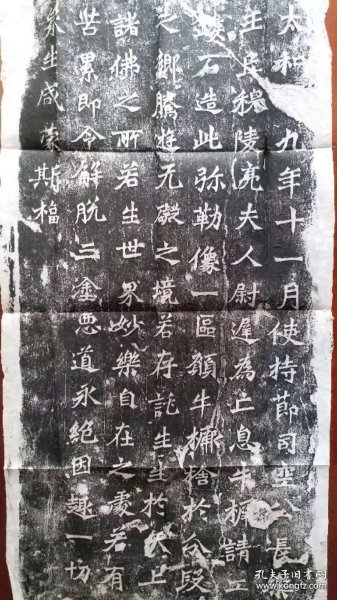 太和 九年十一月使持節司空公長
王丘穆陵亮夫人尉遲為亡息牛橛請工
鏤石造此弥勒像一區願牛橛捨於分段
之鄉騰遊无礙之境若存託生生於天上
諸佛之所若生世界妙樂自在之處若有
苦累即令解脫三塗惡道永絕因趣一切
眾生咸蒙斯福
孔夫子旧书网